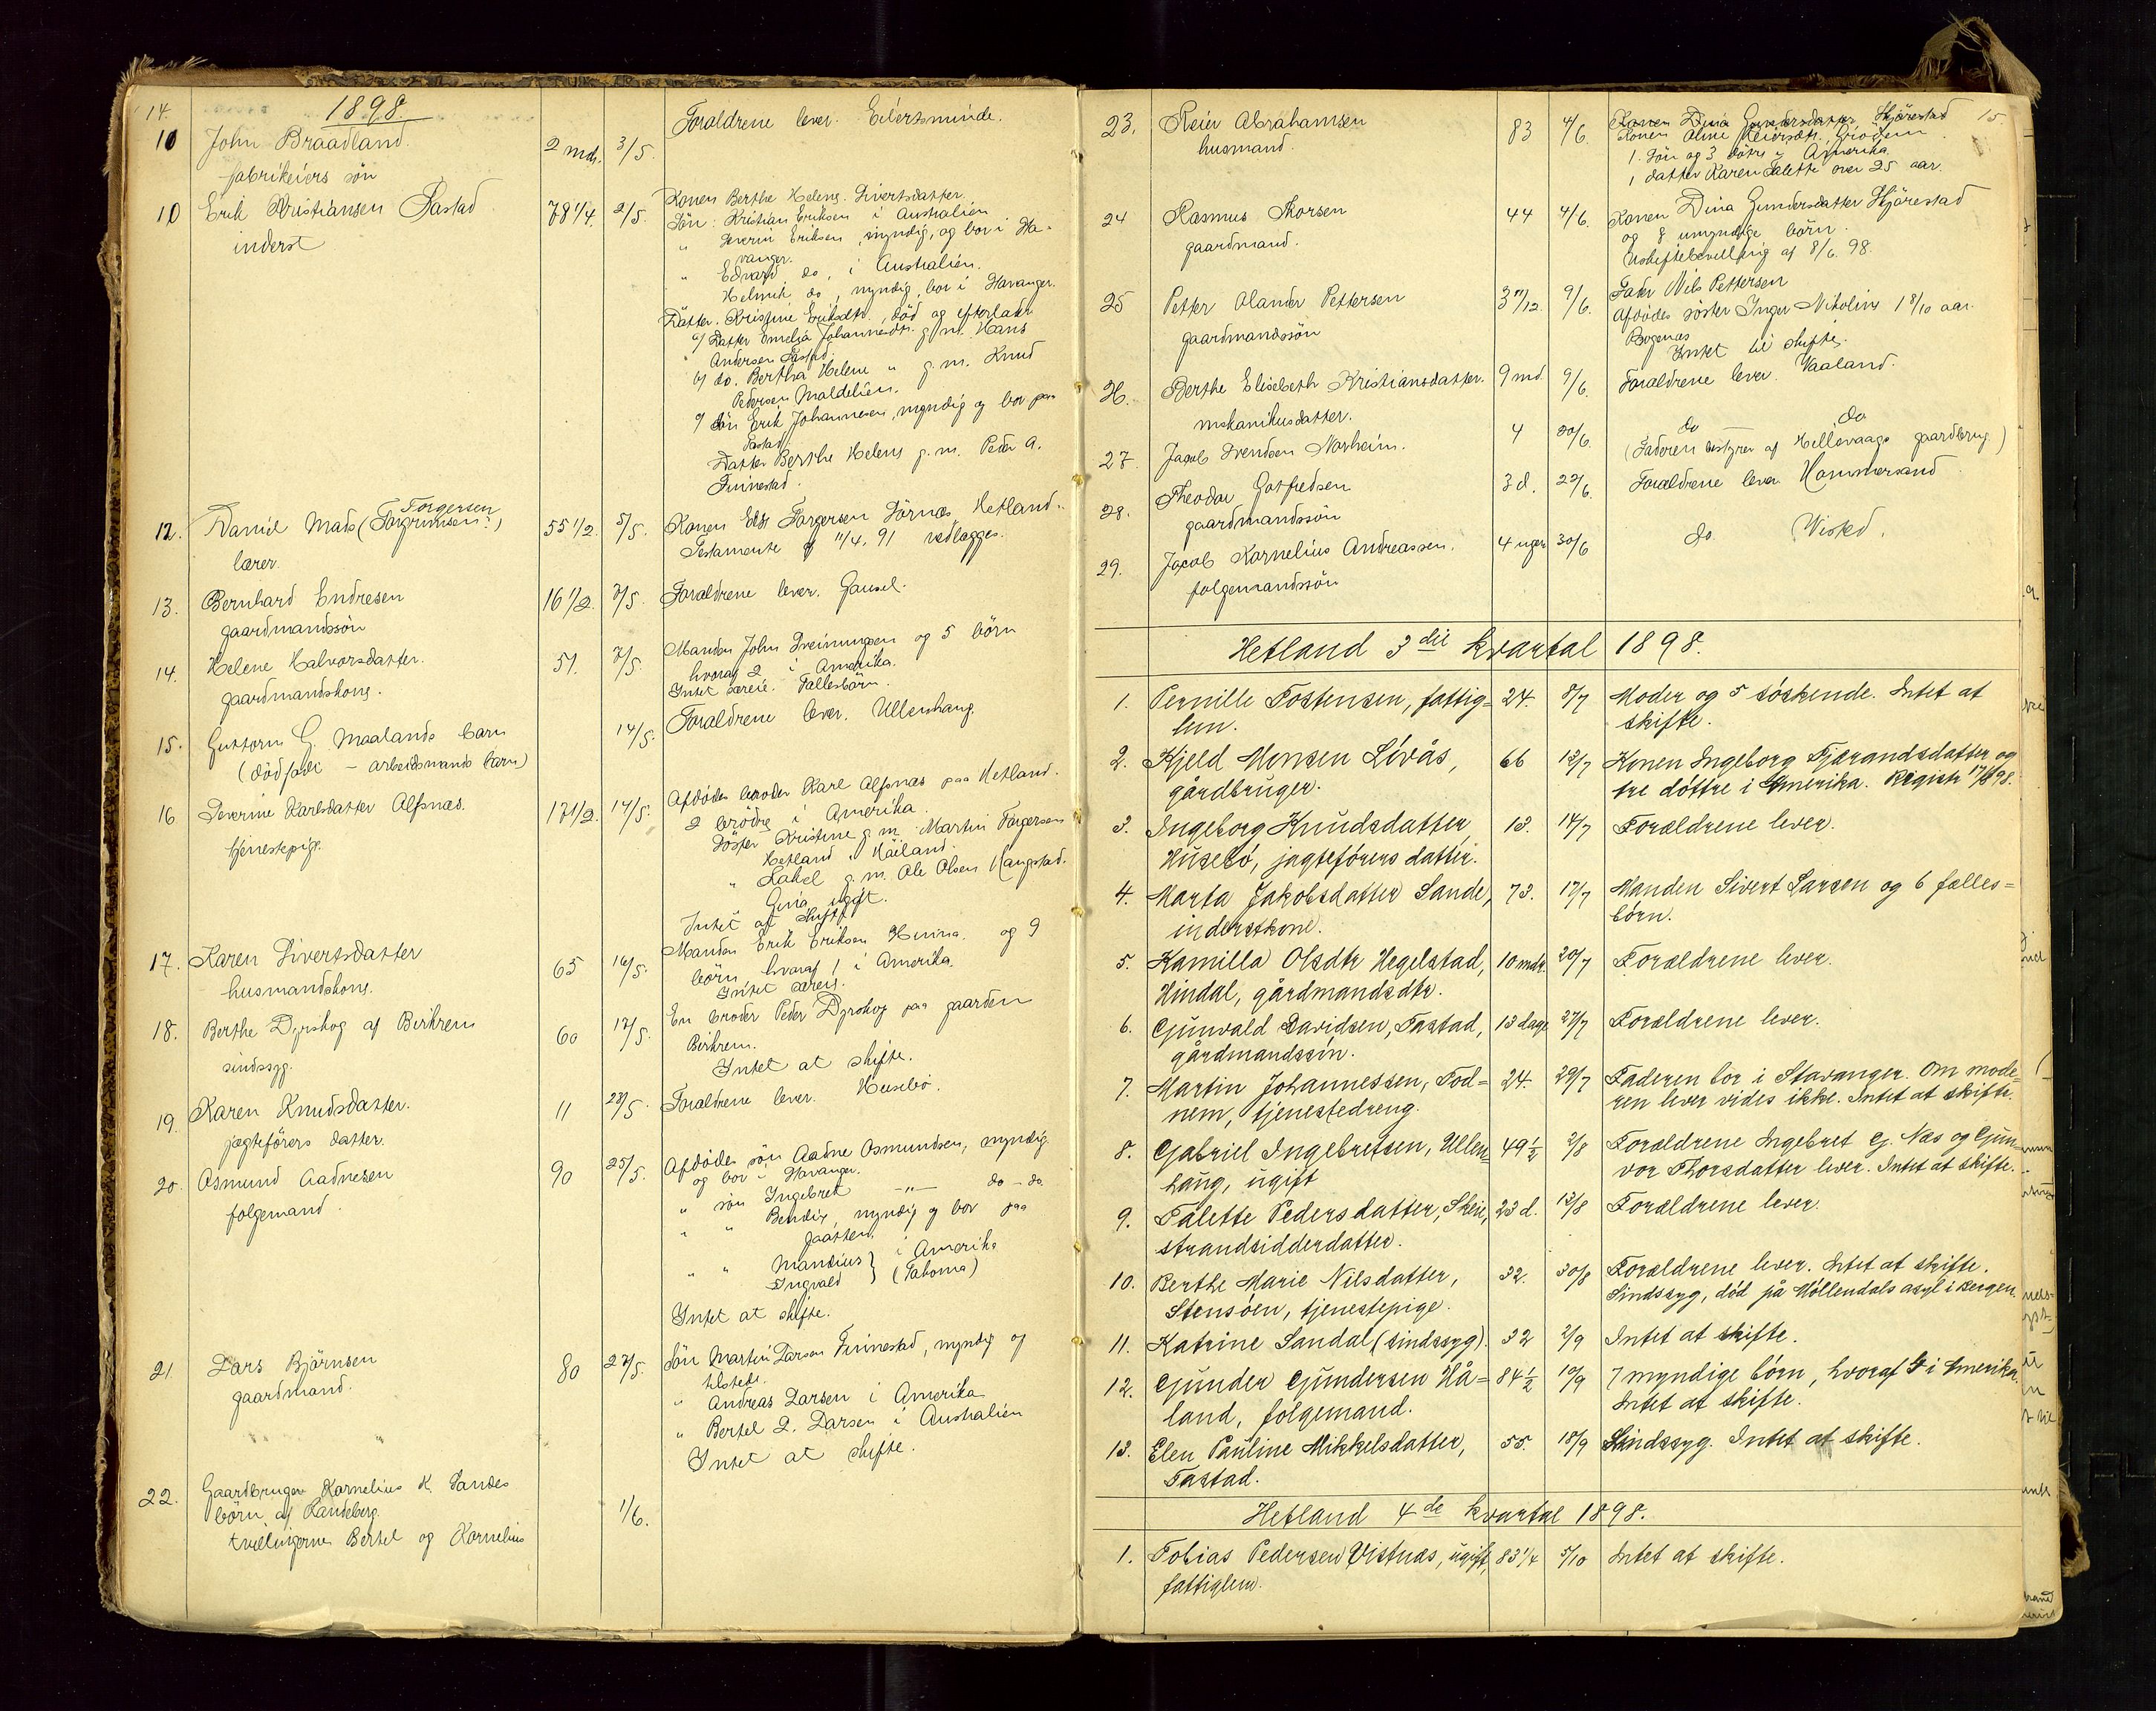 14.
1898.
10 John Braadland. 2 mdr. 3/5. Forældrene lever. Eilertsminde.
fabrikeiers sön
10 Erik Kristiansen Tastad 78 1/4. 2/5. Konen Berthe Helene Sivertsdatter.
inderst
Sön: Kristian Eriksen i Australien
" Severin Eriksen, myndig, og bor i Sta-
vanger.
" Edvard do, i Australien.
Helmik do, myndig, bor i Stavanger.
Datter. Kristine Eriksdtr., död og efterladt
a/ Datter Emelia Johannesdtr. g. m. Hans
Andersen Tastad.
b/ do. Bertha Helene " g. m. Knud
Pedersen Maldelien.
c/ Sön Erik Johannesen, myndig og bor paa
Tastad.
Datter Berthe Helene g. m. Peder A.
Finnestad.
12. Daniel Mads (Torgrimsen?) Torgersen 55 1/2. 5/5. Konen Elis Torgersen Sörnes Hetland.
lærer. Testamente af 11/4. 91 vedlægges.
13. Bernhard Endresen 16 1/2. 7/5. Forældrene lever. Gausel.
gaardmandssön
14. Helene Halvorsdatter. 51. 7/5. Manden John Sveinungsen og 5 börn
gaardmandskone. hvoraf 2 i Amerika.
Intet særeie. Fællesbörn.
15. Guttorm G. Maalands barn 14/5. Forældrene lever. Ullenhaug.
(dödfödt - arbeidsmands barn)
16 Severine Karlsdatter Alfsnæs. 17 1/2. 14/5. Afdödes broder Karl Alfsnæs paa Hetland.
tjenestepige. 2 brödre i Amerika.
Söster Kristine g. m. Martin Torgersen
Hetland, Hailand.
" Rakel g. m. Ole Olsen Haugstad.
Gina ugift.
Intet at skifte.
17. Karen Sivertsdatter 65 16/5. Manden Erik Eriksen Hinna og 9
husmandskone. börn hvoraf 1 i Amerika.
Intet særeie.
18. Berthe Dyrskog af Birkrem 60 17/5. En broder Peder Dyrskog paa gaarden
sindssyg. Birkrem.
Intet at skifte.
19. Karen Knudsdatter. 11 23/5. Forældrene lever. Husebö.
jægteförers datter.
20. Osmund Aadnesen 90 25/5. Afdödes sön Aadne Osmundsen, myndig
folgemand. og bor i Stavanger.
" sön Ingebret -"- do - do
" " Bendix, myndig og bor paa
gaarden.
" " Mandius } i Amerika
Ingvald } (Takoma)
Intet at skifte.
21. Lars Björnsen 80 27/5. Sön Martin Larsen Finnestad, myndig og
gaardmand. tilstede.
" Andreas Larsen i Amerika
" Bertel L. Larsen i Australien
Intet at skifte.
22. Gaardbruger Kornelius K. Sandes
börn af Randeberg. 1/6.
tvillingerne Bertel og Kornelius
15
23. Reier Abrahamsen 83 4/6. Konen Dina Gundersdatter Skjörestad
husmand. Konen Aline Reiersdtr. Grödem
1. sön og 3 dötre i Amerika
1 datter Karen Talette over 25 aar.
24 Rasmus Thorsen 44 4/6. Konen Dina Gundersdatter Skjörestad
gaardmand. og 8 umyndige börn.
Uskiftebevilling af 8/6. 98.
25 Petter Olander Pettersen 3 11/12. 9/6. Fader Nils Pettersen
gaardmandssön Afdödes söster Inger Nikoline 1 8/10 aar.
Bogenæs
Intet til skifte.
26. Berthe Elisebeth Kristiansdatter. 9 md. 9/6. Forældrene lever. Vaaland.
mekanikusdatter.
27. Jacob Svendsen Norheim. 4 20/6. do do
(Faderen bestyrer af Hillevaags gaardbrug.)
28. Theodor Gotfredsen 3 d. 22/6. Forældrene lever Hommersand
gaardmandssön
29. Jacob Kornelius Andreassen. 4 uger 30/6 do Visted.
folgemandssön
Hetland 3die kvartal 1898.
1. Pernille Tostensen, fattig= 24. 8/7 Moder og 5 söskende. Intet at
lem. skifte.
2. Kjeld Monsen Lövås, 66 12/7 Konen Ingeborg Fjærandsdatter og
gårdbruger. tre döttre i Amerika.
3. Ingeborg Knudsdatter 13. 14/7 Forældrene lever.
Husebö, jagteförers datter.
4. Marta Jakobsdatter Sande, 73. 17/7 Manden Sivert Larsen og 6 fælles=
inderstkone. börn.
5. Kamilla Olsdtr Hegelstad, 10 mdr. 20/7 Forældrene lever.
Hindal, gårdmandsdtr.
6. Gunvald Davidsen, Tastad, 13 dage 27/7 Forældrene lever.
gårdmandssön.
7. Martin Johannessen, Tod= 24. 29/7 Faderen bor i Stavanger. Om mode=
nem, tjenestedreng. ren lever vides ikke. Intet at skifte.
8. Gabriel Ingebretsen, Ullen= 49 1/2 2/8 Forældrene Ingebret G. Næs og Gun=
haug, ugift vor Thorsdatter lever. Intet at skifte.
9. Talette Pedersdatter, Skeie, 23 d. 13/8 Forældrene lever.
strandsidderdatter.
10. Berthe Marie Nilsdatter, 32. 30/8 Forældrene lever. Intet at skifte.
Stensöen, tjenestepige. Sindssyg, död på Möllendals asyl i Bergen.
11. Katrine Sandal (sindssyg). 32 2/9 Intet at skifte.
12. Gunder Gundersen Hå= 84 1/2 10/9 7 myndige börn, hvoraf 5 i Amerika.
land, folgemand. Intet at skifte.
13. Elen Pauline Mikkelsdatter, 55. 18/9 Sindssyg. Intet at skifte.
Tastad.
Hetland 4de kvartal 1898.
1. Tobias Pedersen Vistnæs, ugift, 83 1/4 5/10 Intet at skifte.
fattiglem.